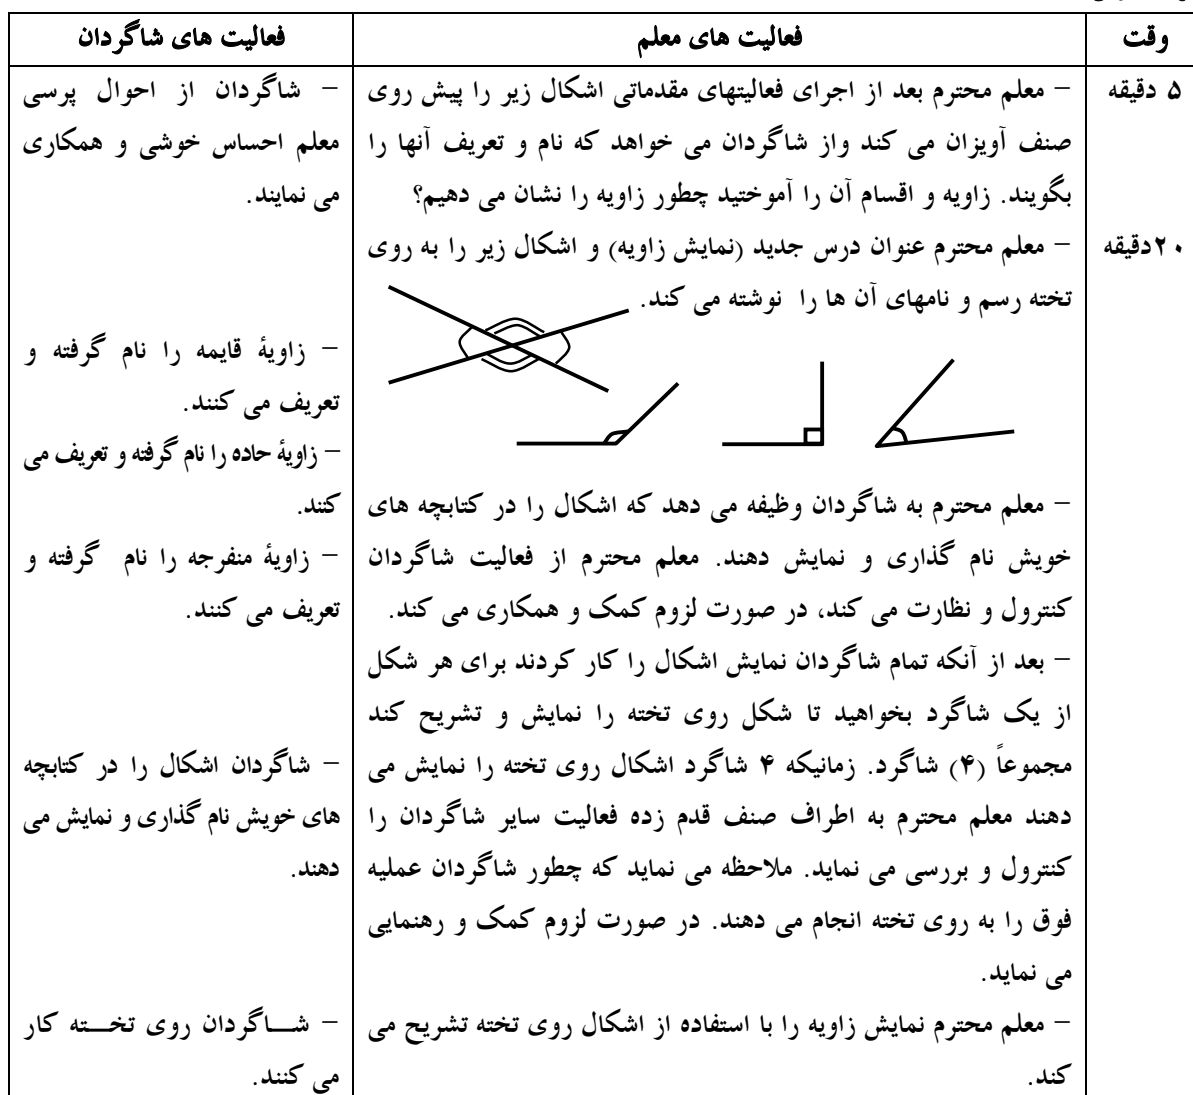 وقت
فعالیت های معلم
فعالیت های شاگردان
۵ دقیقه
۲۰دقیقه
– معلم محترم بعد از اجرای فعالیتهای مقدماتی اشکال زیر را پیش روی
صنف آویزان می کند واز شاگردان می خواهد که نام و تعریف آنها را
بگویند. زاویه و اقسام آن را آموختید چطور زاویه را نشان می دهیم؟
– معلم محترم عنوان درس جدید (نمایش زاویه) و اشکال زیر را به روی
تخته رسم و نامهای آن ها را نوشته می کند.
– معلم محترم به شاگردان وظیفه می دهد که اشکال را در کتابچه های
خویش نام گذاری و نمایش دهند. معلم محترم از فعالیت شاگردان
کنترول و نظارت می کند، در صورت لزوم کمک و همکاری می کند.
– بعد از آنکه تمام شاگردان نمایش اشکال را کار کردند برای هر شکل
از یک شاگرد بخواهید تا شکل روی تخته را نمایش و تشریح کند
مجموعاً (۴) شاگرد. زمانیکه ۴ شاگرد اشکال روی تخته را نمایش می
دهند معلم محترم به اطراف صنف قدم زده فعالیت سایر شاگردان را
کنترول و بررسی می نماید. ملاحظه می نماید که چطور شاگردان عملیه
فوق را به روی تخته انجام می دهند. در صورت لزوم کمک و رهنمایی
می نماید.
– معلم محترم نمایش زاویه را با استفاده از اشکال روی تخته تشریح می
کند.
– شاگردان از احوال پرسی
معلم احساس خوشی و همکاری
می نمایند.
– زاویۀ قایمه را نام گرفته و
تعریف می کنند.
– زاویۀ حاده را نام گرفته و تعریف می
کنند.
– زاویۀ منفرجه را نام گرفته و
تعریف می کنند.
– شاگردان اشکال را در کتابچه
های خویش نام گذاری و نمایش می
دهند.
– شـــاگردان روی تخـــته کار
می کنند.